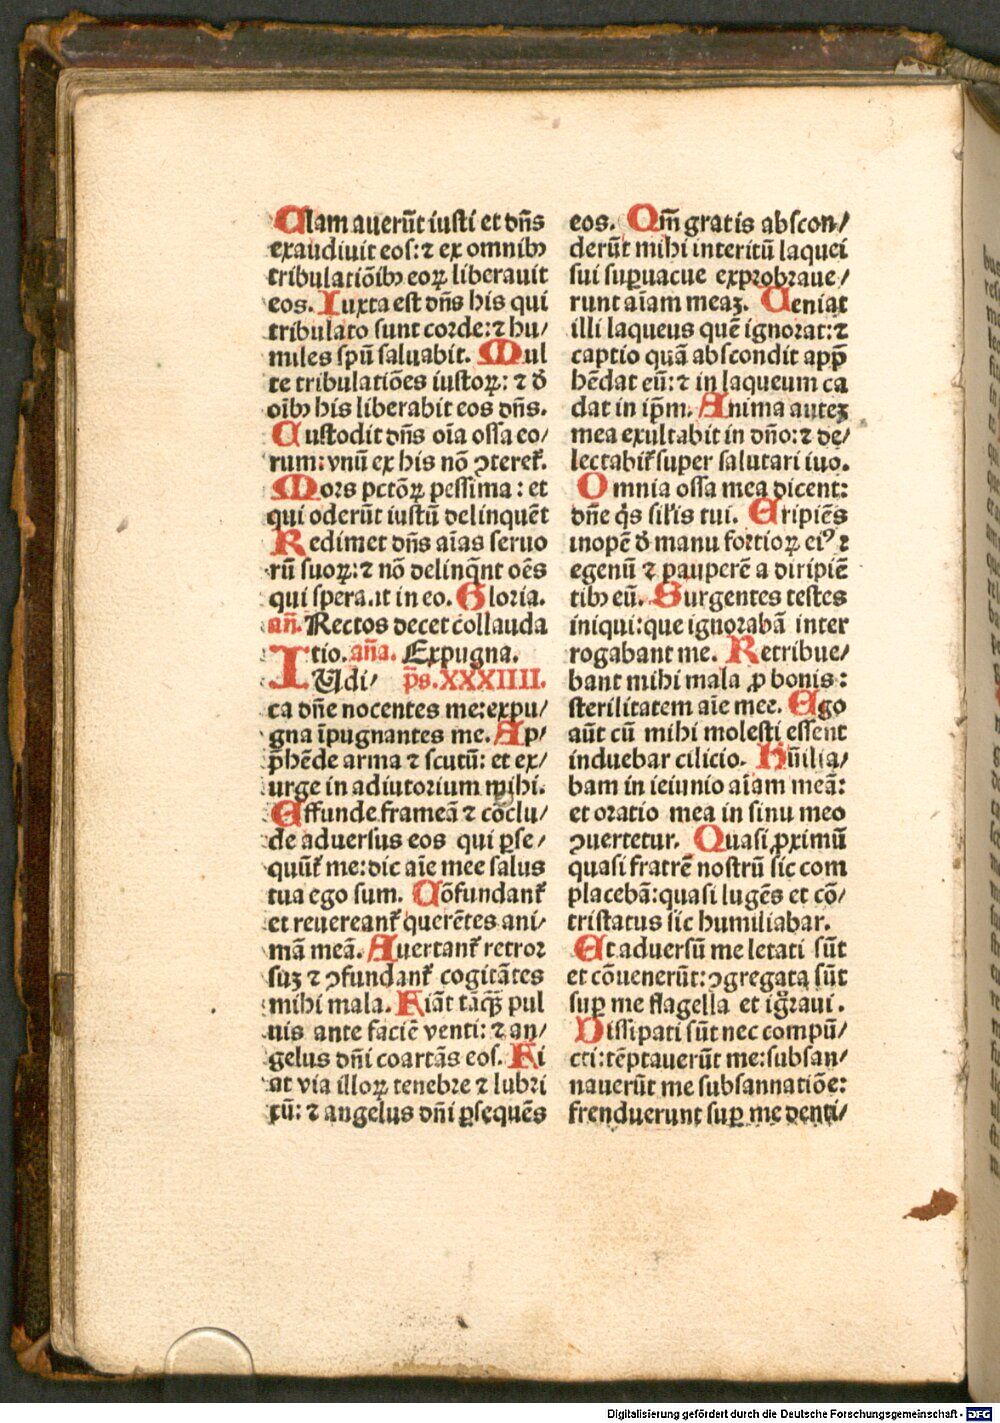 Clam auerūt iusti et dn̄s
exaudiuit eos: ⁊ ex omnibꝫ
tribulatiōibꝫ eoꝝ liberauit
eos. Iuxta est dn̄s his qui
tribulato sunt corde: ⁊ hu/
miles spū saluabit. Mul
te tribulatiōes iustoꝝ: ⁊ d̄
oībꝫ his liberabit eos dn̄s.
Custodit dn̄s oīa ossa eo/
rum: vnū ex his nō ꝯteret᷑.
Mors pctōꝝ pessima: et
qui oderūt iustū delinquēt
Redimet dn̄s aīas seruo
rū suoꝝ: ⁊ nō delinq̄nt oēs
qui sperāt in eo. Gloria.
an̄. Rectos decet collauda
tio. an̄a. Expugna.
IUdi/ p̄s. XXXIIII.
ca dn̄e nocentes me: expu/
gna īpugnantes me. Ap/
p̄hēde arma ⁊ scutū: et ex/
urge in adiutorium mihi.
Effunde frameā ⁊ cōclu/
de aduersus eos qui ꝑse/
quūt᷑ me: dic aīe mee salus
tua ego sum. Cōfundant᷑
et reuereant᷑ querētes ani/
mā meā. Auertant᷑ retror
suꝫ ⁊ ꝯfundant᷑ cogitātes
mihi mala. Fiāt tāq̄ꝫ pul
uis ante faciē venti: ⁊ an/
gelus dn̄i coartās eos. Fi
at via illoꝝ tenebre ⁊ lubri
cū: ⁊ angelus dn̄i ꝑsequēs
eos. Qm̄ gratis abscon/
derūt mihi interitū laquei
sui suꝑuacue exprobraue/
runt aīam meaꝫ. Ueniat
illi laqueus quē ignorat: ⁊
captio quā abscondit app̄
hēdat eū: ⁊ in laqueum ca
dat in ip̄m. Anima auteꝫ
mea exultabit in dn̄o: ⁊ de/
lectabit᷑ super salutari suo.
Omnia ossa mea dicent:
dn̄e q̇s sil'is tui. Eripiēs
inopē d̄ manu fortioꝝ eiꝰ ⁊
egenū ⁊ pauperē a diripiē
tibꝫ eū. Surgentes testes
iniqui: que ignorabā inter
rogabant me. Retribue/
bant mihi mala ꝓ bonis:
sterilitatem aīe mee. Ego
aūt cū mihi molesti essent
induebar cilicio. Hūilia/
bam in ieiunio aīam meā:
et oratio mea in sinu meo
ꝯuertetur. Quasi ꝓximū
quasi fratrē nostrū sic com
placebā: quasi lugēs et cō/
tristatus sic humiliabar.
Et aduersū me letati sūt
et cōuenerūt: ꝯgregata sūt
suꝑ me flagella et ig̅raui.
Dissipati sūt nec compū/
cti: tēptauerūt me: subsan/
nauerūt me subsannatiōe:
frenduerunt suꝑ me denti/
Digitalisierung gefördert durch die Deutsche Forschungsgemeinschaft - DFG